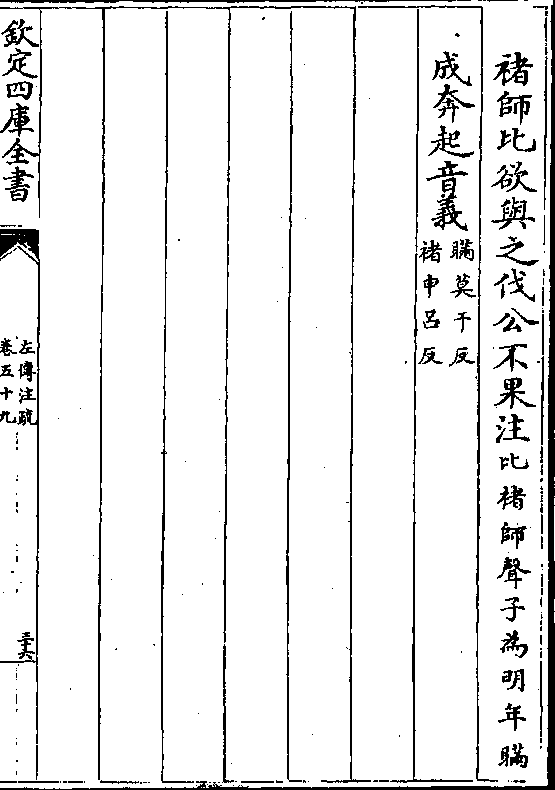 褚師比欲與之伐公不果注比褚師聲子為明年瞞
成奔起音義瞞莫干反
褚申呂反
欽定四庫全書
左傳注疏
卷五十九
三十六